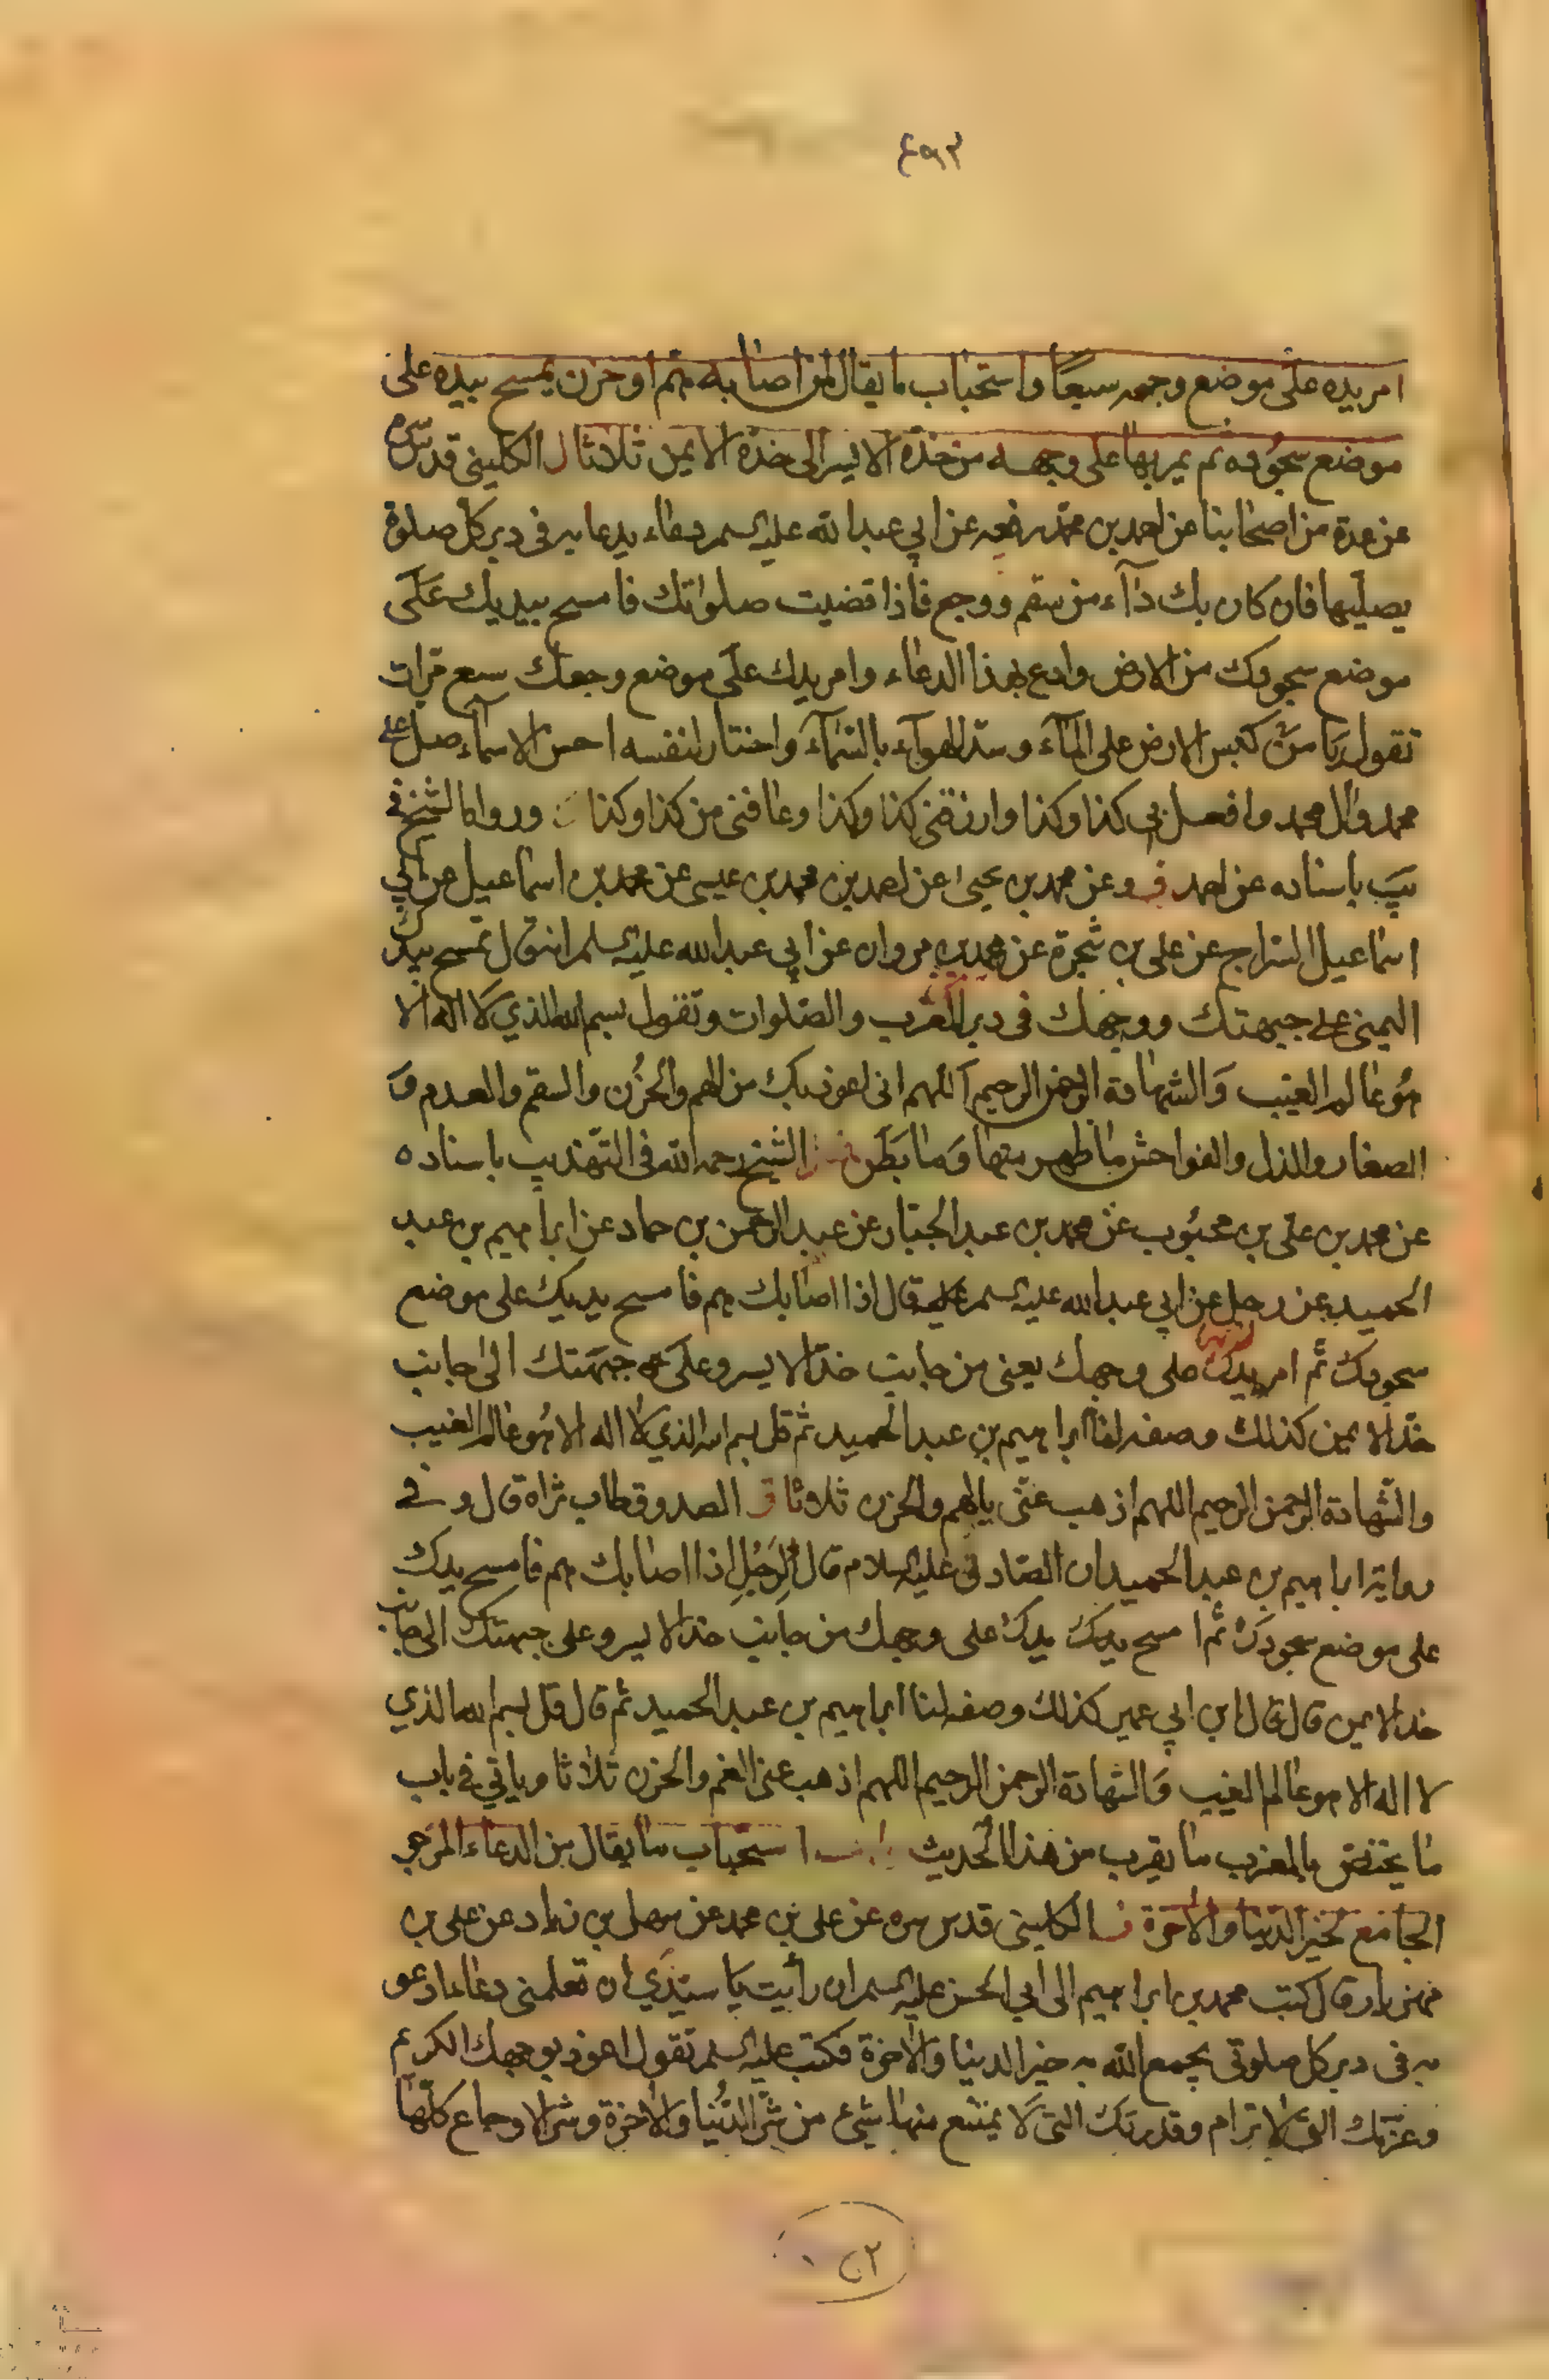 ٤٩٣
امر يده على موضع وجعه سبعًا واستحباب ما يقال لمن اصابه هم او حزن يمسح بيده على
موضع سجوده ثم يمر بها على وجهه من خدّه الايسر الى خدّه الايمن ثلاثا ل الكليني قدس سره
عن عدة من اصحابنا عن احمد بن محمد رفعه عن ابي عبد الله عليه السلم دعاء يدعا به في دبر كل صلوة
يصليها فان كان بك دآء من سقم ووجع فاذا قضيت صلواتك فامسح بيديك على
موضع سجودك من الارض وادع بهذا الدعاء وامر يدك على موضع وجعك سبع مرات
تقول يا من كبس الارض على المآء وسد الهوآء بالسمآء واختار لنفسه احسن الاسمآء صل على
محمد وال محمد وافعل بي كذا وكذا وارزقني كذا وكذا وعافني من كذا وكذا ورواه الشيخ في
يب باسناده عن احمد في وعن محمد بن يحيى عن احمد بن محمد بن عيسى عن محمد بن اسماعيل عن ابي
اسماعيل السراج عن علي بن شجرة عن محمد بن مروان عن ابي عبد الله عليه السلم انه قال تمسح بيدك
اليمنى على جبهتك ووجهك في دبر المغرب والصلوات وتقول بسم الله الذي لا اله الا
هو عالم الغيب والشهادة الرحمن الرحيم اللهم اني اعوذ بك من الهم والحزن والسقم والعدم و
الصغار والذل والفواحش ما ظهر منها وما بطن الشيخ رحمه الله في التهذيب باسناده
عن محمد بن علي بن محبوب عن محمد بن عبد الجبار عن عبد الرحمن بن حماد عن ابراهيم بن عبد
الحميد عن رجل عن ابي عبد الله عليه السلم قال اذا اصابك هم فامسح يديك على موضع
سجودك ثم امر يدك على وجهك يعني من جانب خدّ الايسر وعلى جبهتك الى جانب
خدّ الايمن كذلك وصفه لنا ابراهيم بن عبد الحميد ثم قل بسم الله الذي لا اله الا هو عالم الغيب
والشهادة الرحمن الرحيم اللهم اذهب عني بالهم والحزن ثلاثا الصدوق طاب ثراه قال وفي
رواية ابراهيم بن عبد الحميد ان الصادق عليه السلام قال لرجل اذا اصابك هم فامسح يدك
على موضع سجودك ثم امسح يدك يدك على وجهك من جانب خد الايسر وعلى جبهتك الى جانب
خد الايمن قال قال ابن ابي عمير كذلك وصفه لنا ابراهيم بن عبد الحميد ثم قال قل بسم الله الذي
لا اله الا هو عالم الغيب والشهادة الرحمن الرحيم اللهم اذهب عني الغم والحزن ثلاثا وياتي في باب
ما يختص بالمغرب ما يقرب من هذا الحديث باب استحباب ما يقال من الدعاء المرجو
الجامع لخير الدنيا والاخرة الكليني قدس سره عن علي بن محمد عن سهل بن زياد عن علي بن
مهزيار قال كتب محمد بن ابراهيم الى ابي الحسن عليه السلم ان رأيت يا سيّدي ان تعلمني دعاء ادعو
به في دبر كل صلوتي يجمع الله به خير الدنيا والاخرة فكتب عليه السلم تقول اعوذ بوجهك الكريم
وعزتك التي لا ترام وقدرتك التي لا يمتنع منها شيء من شر الدنيا والاخرة وشر الاوجاع كلها